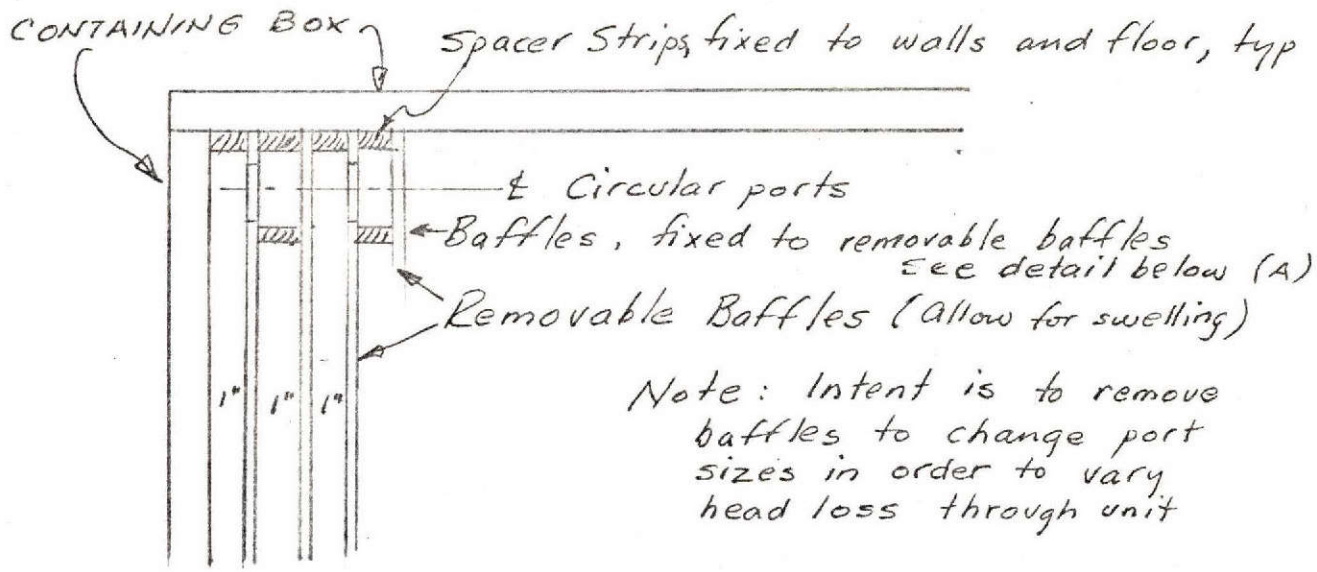 CONTAINING BOX
Spacer Strips, fixed to walls and floor, typ
℄ Circular ports
Baffles, fixed to removable baffles
see detail below (A)
Removable Baffles (allow for swelling)
1" 1" 1"
Note: Intent is to remove
baffles to change port
sizes in order to vary
head loss through unit